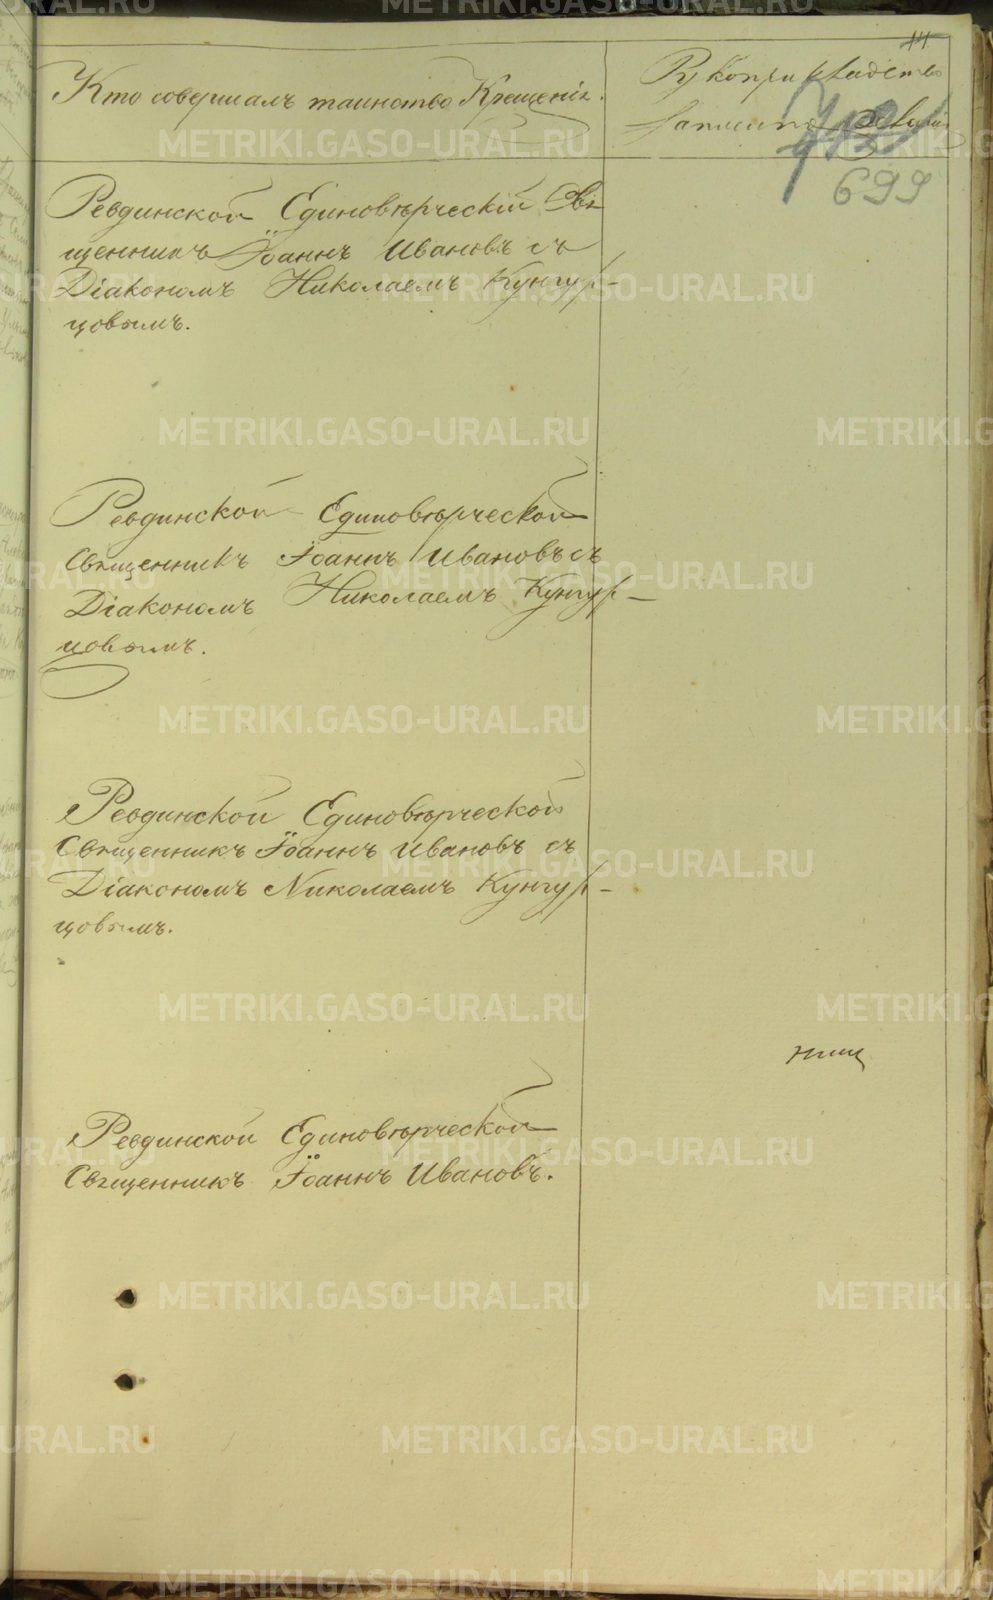 Кто совершалъ таинство Крещенія.
Рукоприкладство
699
Ревдинской Единовѣрческій Свя
щенникъ Іоаннъ Ивановъ съ
Діакономъ Николаемъ Кунгур-
цовымъ.
Ревдинской Единовѣрческой
Священникъ Іоаннъ Ивановъ съ
Діакономъ Николаемъ Кунгур-
цовымъ.
Ревдинской Единовѣрческой
Священникъ Іоаннъ Ивановъ съ
Діакономъ Николаемъ Кунгур-
цовымъ.
Ревдинской Единовѣрческой
Священникъ Іоаннъ Ивановъ.
METRIKI.GASO-URAL.RU